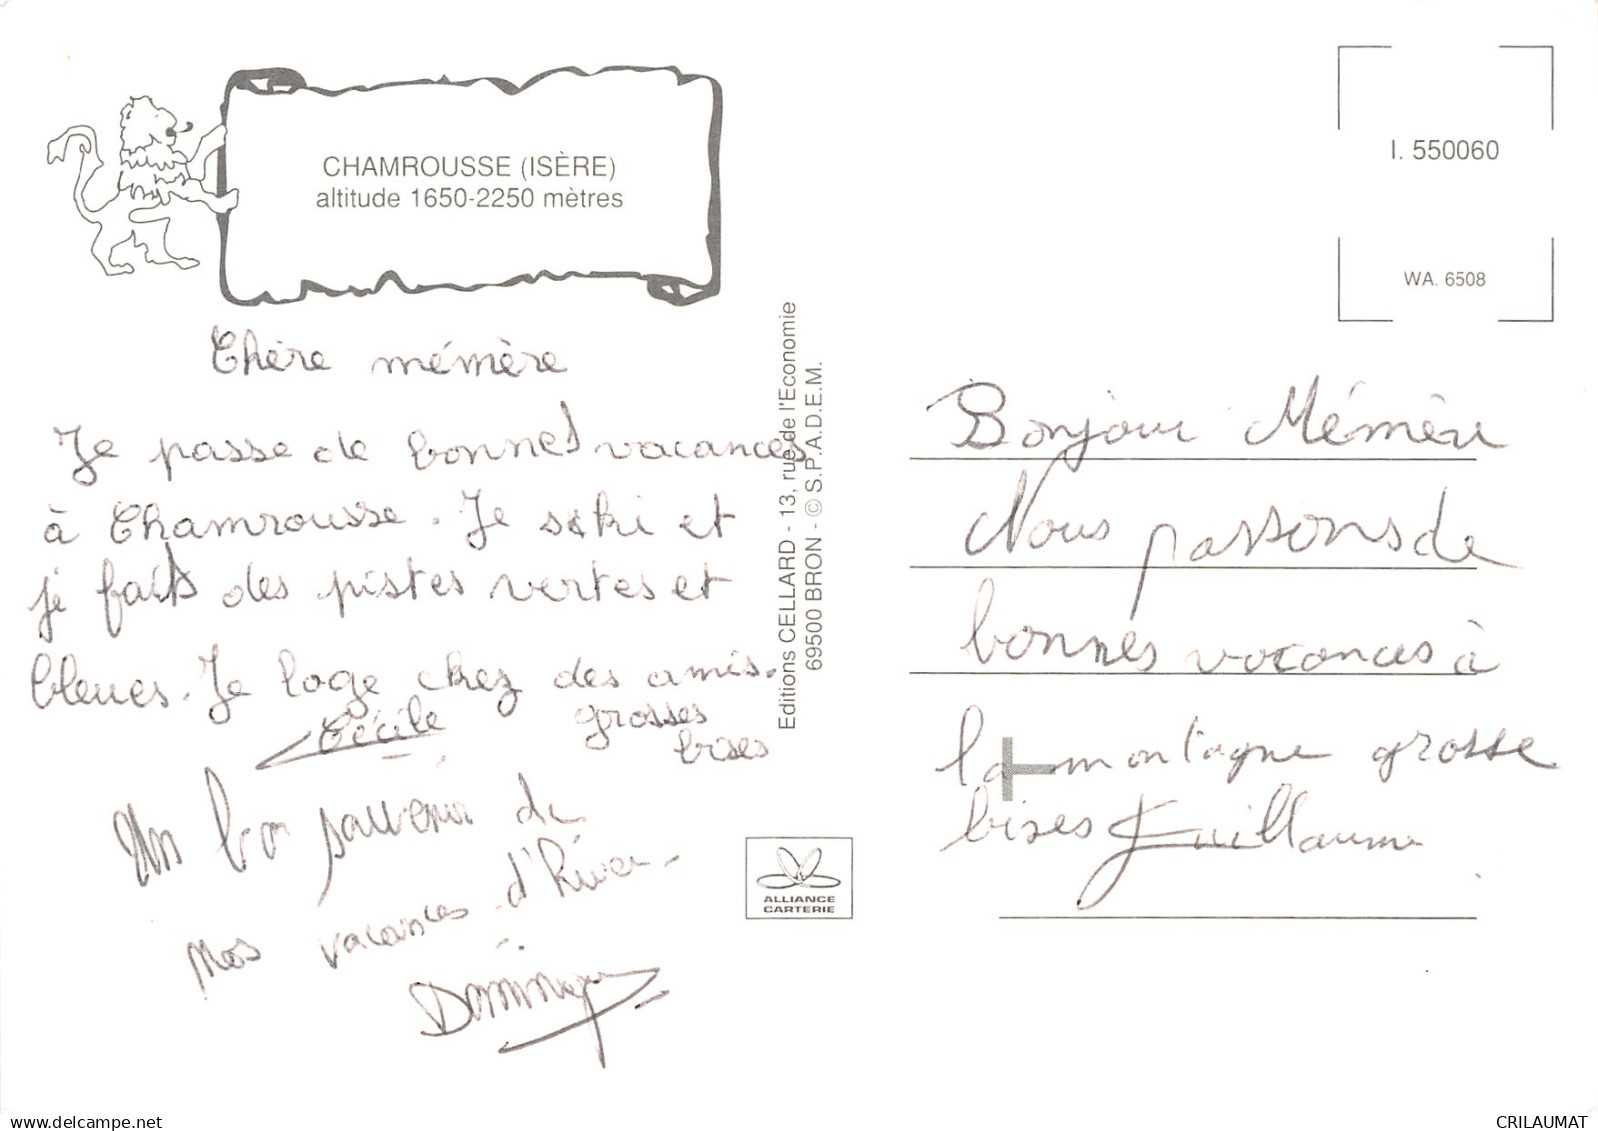 CHAMROUSSE (ISÈRE)
altitude 1650-2250 mètres
Chère mémère
Je passe de bonnes vacances
à Chamrousse. Je ski et
je fais des pistes vertes et
bleues. Je loge chez des amis.
Cécile grosses
bises
Un bon souvenir de
nos vacances d'hiver.
Dominique
Editions CELLARD - 13, rue de l'Economie
69500 BRON - © S.P.A.D.E.M.
ALLIANCE
CARTERIE
I. 550060
WA. 6508
Bonjour Mémère
Nous passons de
bonnes vacances à
la montagne grosse
bises Guillaume
delcampe.net
CRILAUMAT